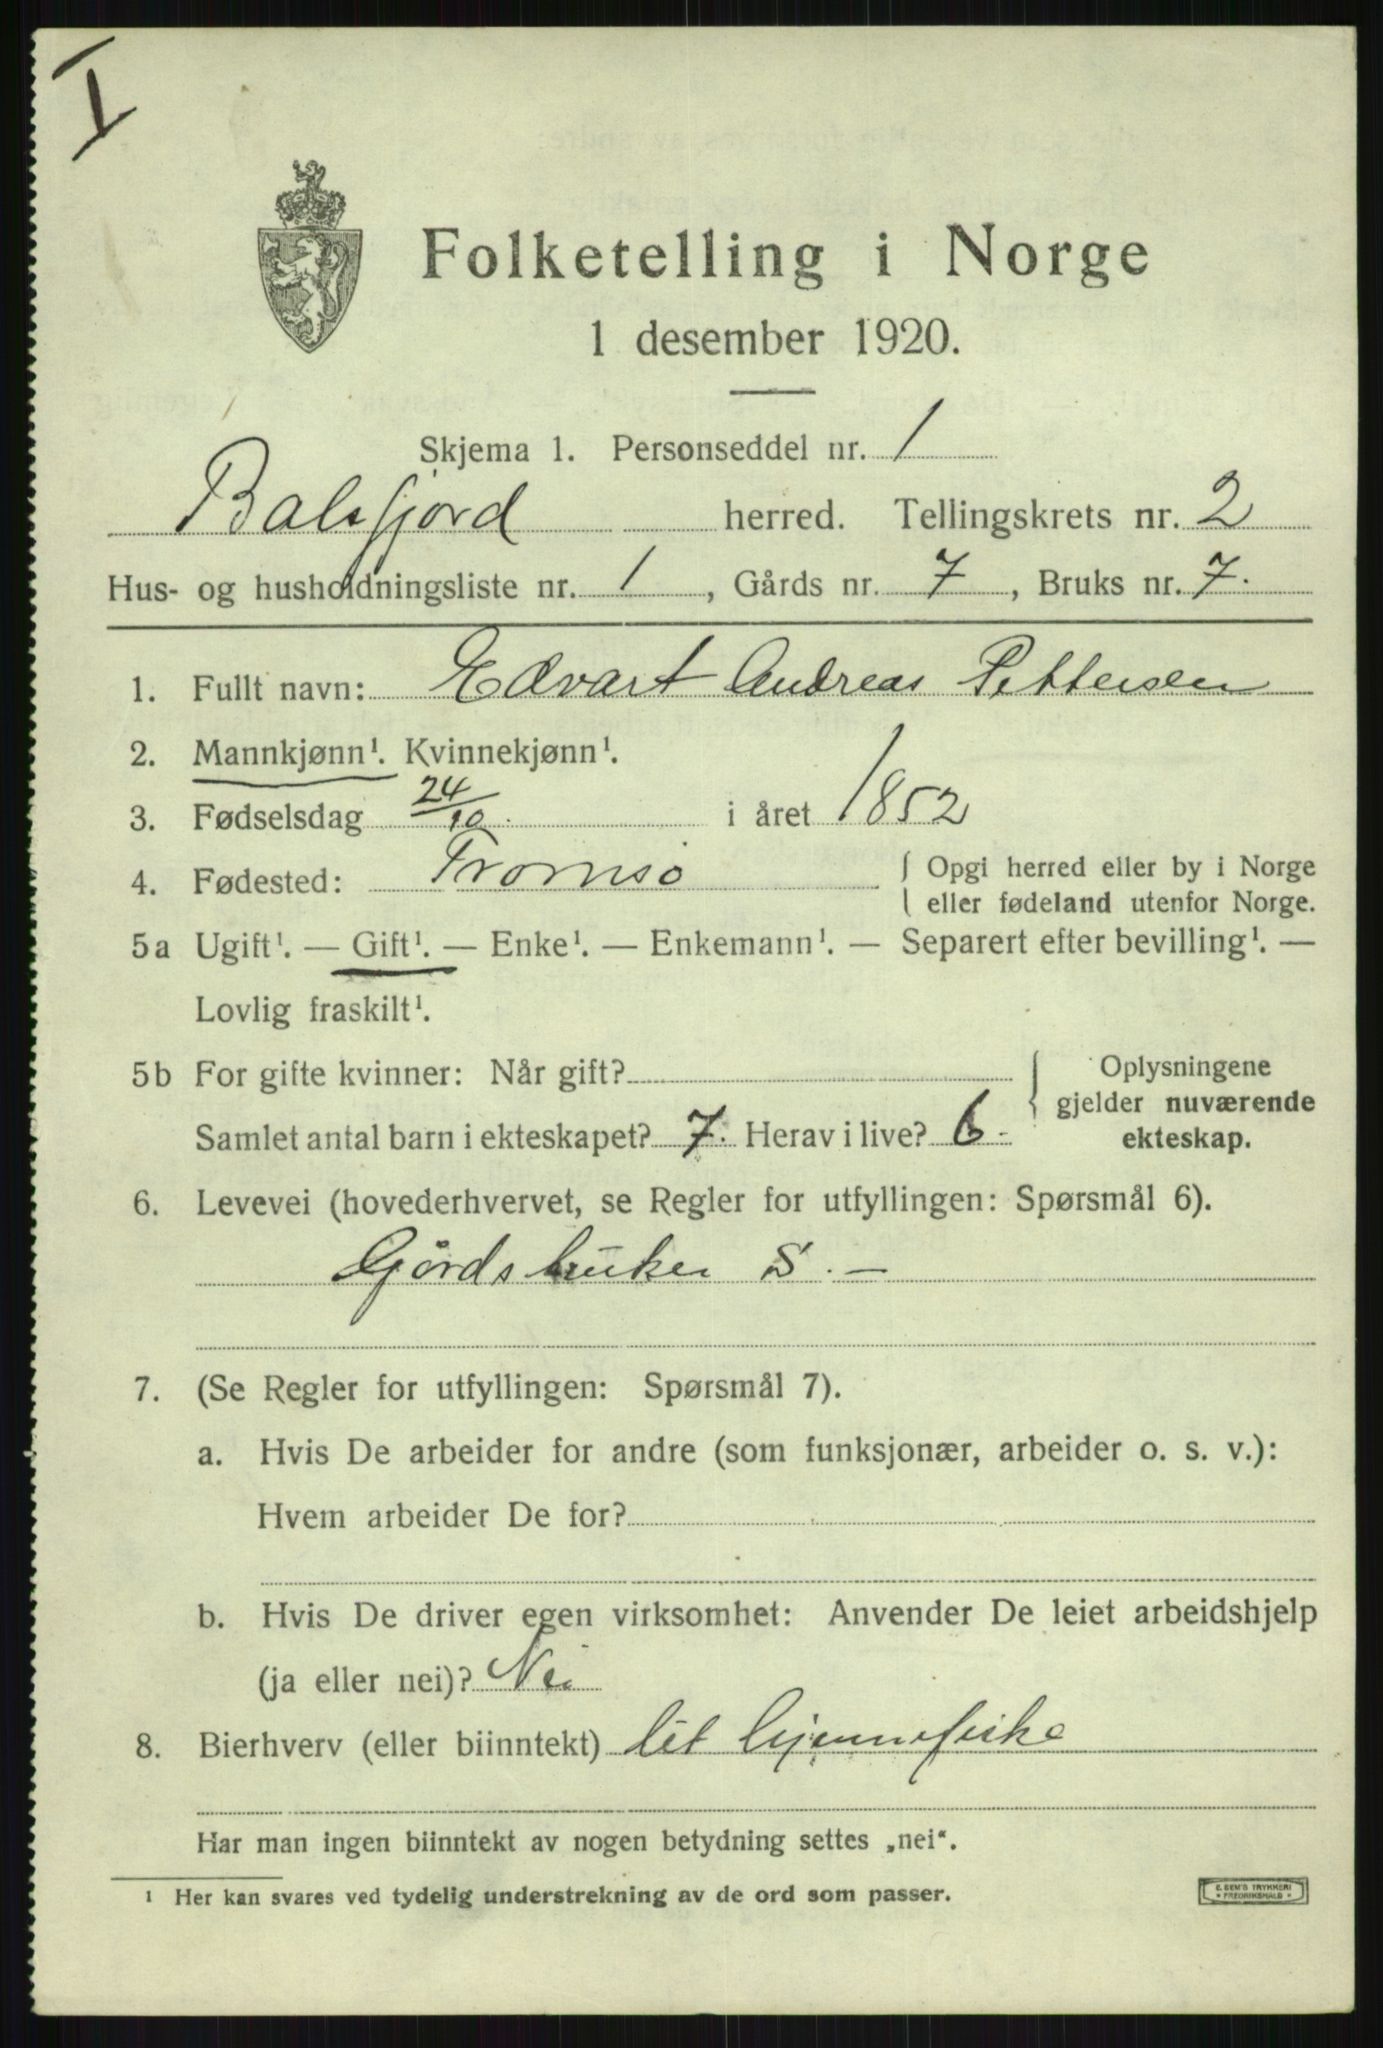 I
Folketelling i Norge
1 desember 1920.
Skjema 1. Personseddel nr. 1
Balsfjord herred. Tellingskrets nr. 2
Hus- og husholdningsliste nr. 1, Gårds nr. 7, Bruks nr. 7.
1. Fullt navn: Edvart Andreas Pettersen
2. Mannkjønn¹. Kvinnekjønn¹.
3. Fødselsdag 24/10. i året 1852
4. Fødested: Tromsø { Opgi herred eller by i Norge
eller fødeland utenfor Norge.
5a Ugift¹. — Gift¹. — Enke¹. — Enkemann¹. — Separert efter bevilling¹. —
Lovlig fraskilt¹.
5b For gifte kvinner: Når gift? { Oplysningene
gjelder nuværende
Samlet antal barn i ekteskapet? 7. Herav i live? 6. ekteskap.
6. Levevei (hovederhvervet, se Regler for utfyllingen: Spørsmål 6).
Gårdsbruker S. —
7. (Se Regler for utfyllingen: Spørsmål 7).
a. Hvis De arbeider for andre (som funksjonær, arbeider o. s. v.):
Hvem arbeider De for?
b. Hvis De driver egen virksomhet: Anvender De leiet arbeidshjelp
(ja eller nei)? Nei
8. Bierhverv (eller biinntekt) lit hjemmefiske
Har man ingen biinntekt av nogen betydning settes „nei“.
¹ Her kan svares ved tydelig understrekning av de ord som passer.
E. SEM'S TRYKKERI
* FREDRIKSHALD *